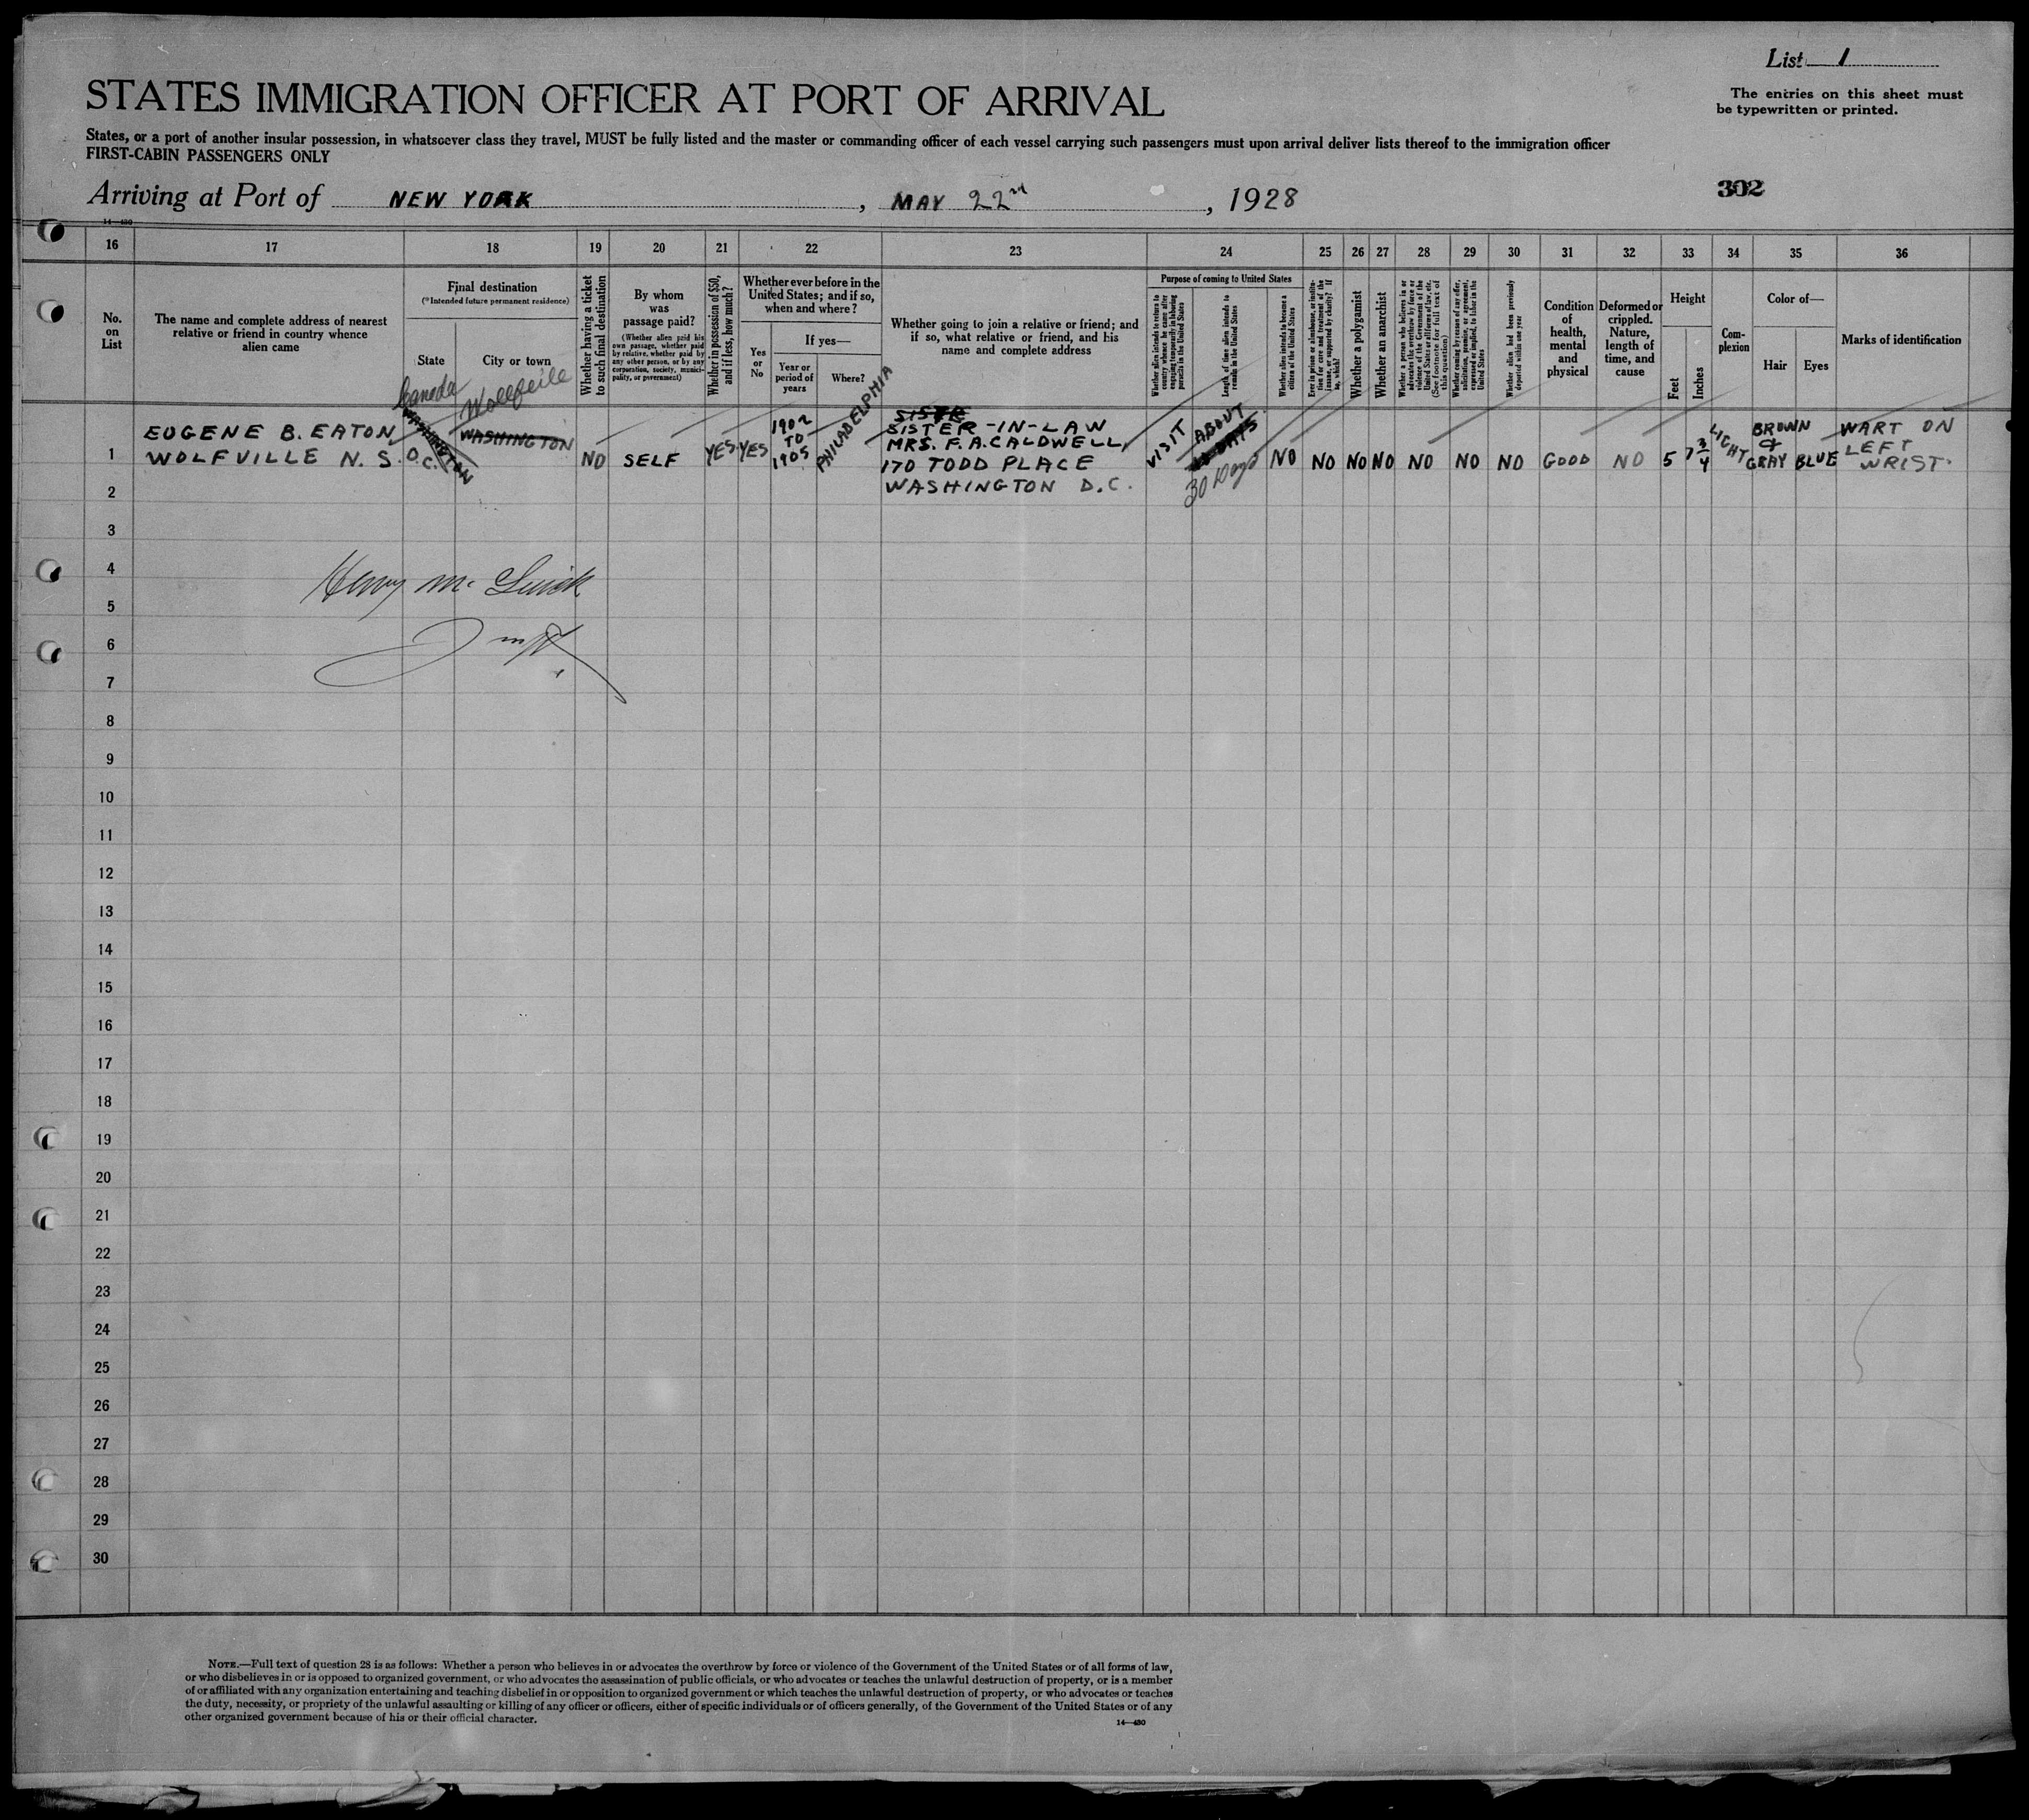 List 1
The entries on this sheet must
be typewritten or printed.
STATES IMMIGRATION OFFICER AT PORT OF ARRIVAL
States, or a port of another insular possession, in whatsoever class they travel, MUST be fully listed and the master or commanding officer of each vessel carrying such passengers must upon arrival deliver lists thereof to the immigration officer
FIRST-CABIN PASSENGERS ONLY
Arriving at Port of NEW YORK, MAY 22nd, 1928
302
14—430
16 17 18 19 20 21 22 23 24 25 26 27 28 29 30 31 32 33 34 35 36
No.
on
List
The name and complete address of nearest
relative or friend in country whence
alien came
Final destination
(*Intended future permanent residence)
State
City or town
Whether having a ticket
to such final destination
By whom
was
passage paid?
(Whether alien paid his
own passage, whether paid
by relative, whether paid by
any other person, or by any
corporation, society, munici-
pality, or government)
Whether in possession of $50,
and if less, how much?
Whether ever before in the
United States; and if so,
when and where?
Yes
or
No
If yes—
Year or
period of
years
Where?
Whether going to join a relative or friend; and
if so, what relative or friend, and his
name and complete address
Purpose of coming to United States
Whether alien intends to return to
country whence he came after
engaging temporarily in laboring
pursuits in the United States
Length of time alien intends to
remain in the United States
Whether alien intends to become a
citizen of the United States
Ever in prison or almshouse, or institu-
tion for care and treatment of the
insane, or supported by charity? If
so, which?
Whether a polygamist
Whether an anarchist
Whether a person who believes in or
advocates the overthrow by force or
violence of the Government of the
United States or all forms of law, etc.
(See footnote for full text of
this question)
Whether coming by reason of any offer,
solicitation, promise, or agreement,
expressed or implied, to labor in the
United States
Whether alien had been previously
deported within one year
Condition
of
health,
mental
and
physical
Deformed or
crippled.
Nature,
length of
time, and
cause
Height
Feet
Inches
Com-
plexion
Color of—
Hair
Eyes
Marks of identification
Canada
Wolfville
1
EUGENE B. EATON
WOLFVILLE N. S.
WASHINGTON
D.C.
WASHINGTON
NO
SELF
YES
YES
1902
TO
1905
PHILADELPHIA
SISTER
SISTER-IN-LAW
MRS. F.A. CALDWELL,
170 TODD PLACE
WASHINGTON D.C.
VISIT
ABOUT
DAYS
30 Days
NO
NO
NO
NO
NO
NO
NO
GOOD
NO
5
7 3/4
LIGHT
BROWN
&
GRAY
BLUE
WART ON
LEFT
WRIST.
2
3
4
Henry Mc
5
6
7
8
9
10
11
12
13
14
15
16
17
18
19
20
21
22
23
24
25
26
27
28
29
30
NOTE.—Full text of question 28 is as follows: Whether a person who believes in or advocates the overthrow by force or violence of the Government of the United States or of all forms of law,
or who disbelieves in or is opposed to organized government, or who advocates the assassination of public officials, or who advocates or teaches the unlawful destruction of property, or is a member
of or affiliated with any organization entertaining and teaching disbelief in or opposition to organized government or which teaches the unlawful destruction of property, or who advocates or teaches
the duty, necessity, or propriety of the unlawful assaulting or killing of any officer or officers, either of specific individuals or of officers generally, of the Government of the United States or of any
other organized government because of his or their official character.
14—430